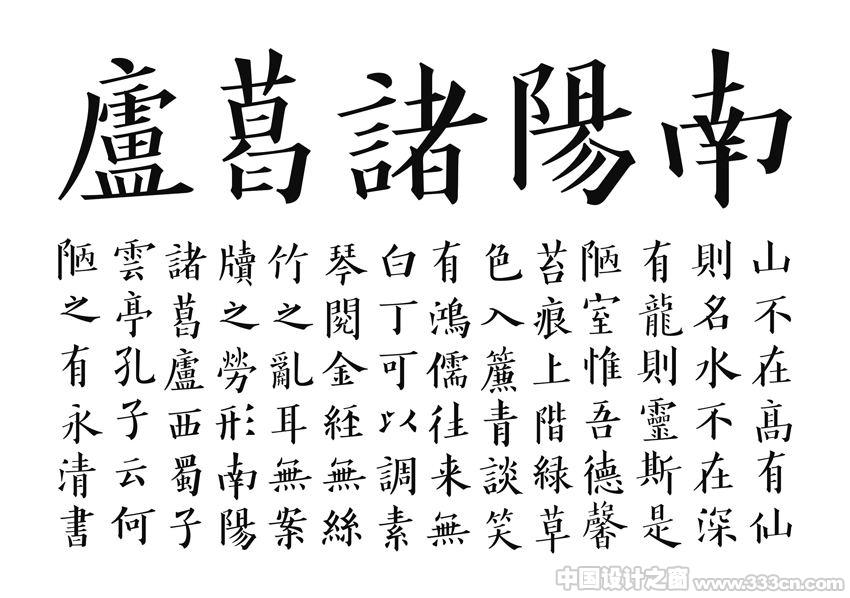 南陽諸葛廬
山不在高有仙
則名水不在深
有龍則靈斯是
陋室惟吾德馨
苔痕上階緑草
色入簾青談笑
有鴻儒往来無
白丁可以調素
琴閱金経無絲
竹之亂耳無案
牘之勞形南陽
諸葛廬西蜀子
雲亭孔子云何
陋之有永清書
中国设计之窗 www.333cn.com